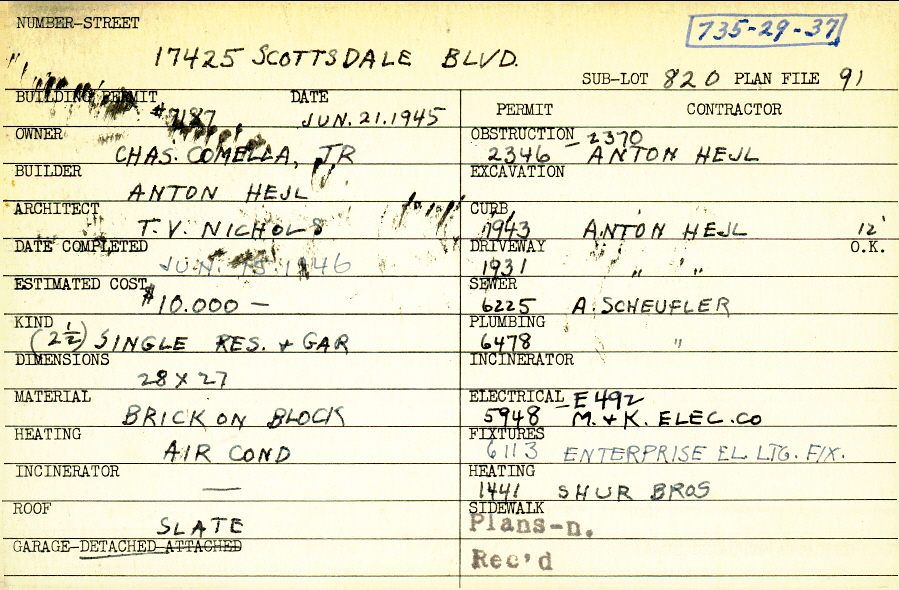 NUMBER-STREET
735-29-37
17425 SCOTTSDALE BLVD.
SUB-LOT 820 PLAN FILE 91
BUILDING PERMIT DATE
#7187 JUN. 21. 1945
PERMIT CONTRACTOR
OWNER
CHAS. COMELLA, JR
OBSTRUCTION - 2370
2346 ANTON HEJL
BUILDER
ANTON HEJL
EXCAVATION
ARCHITECT
T. V. NICHOLS
CURB
1943 ANTON HEJL 12'
DATE COMPLETED
JUN. 15. 1946
DRIVEWAY O.K.
1931 " "
ESTIMATED COST
$10.000 —
SEWER
6225 A. SCHEUFLER
KIND
(2 1/2) SINGLE RES. + GAR
PLUMBING
6478 "
DIMENSIONS
28 X 27
INCINERATOR
MATERIAL
BRICK ON BLOCK
ELECTRICAL - E492
5948 M. + K. ELEC. CO
HEATING
AIR COND
FIXTURES
6113 ENTERPRISE EL. LTG. FIX.
INCINERATOR
—
HEATING
1441 SHUR BROS
ROOF
SLATE
SIDEWALK
Plans-n.
GARAGE-DETACHED-ATTACHED
Rec'd